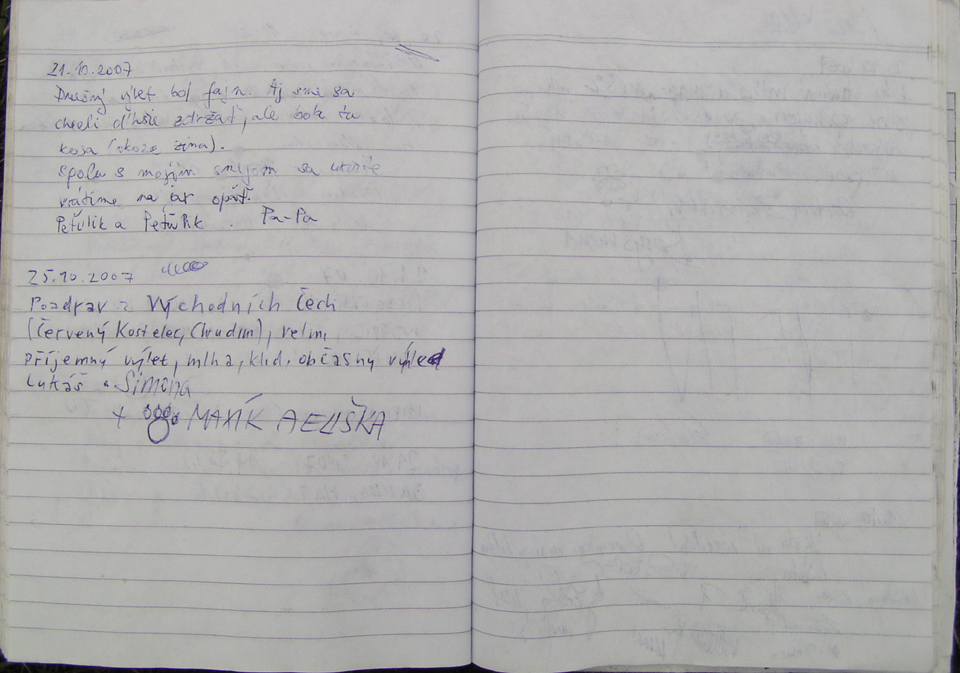 21.10.2007
Dnešný výlet bol fajn. Aj sme sa
chceli dlhšie zdržať, ale bola tu
kosa (skoro zima).
Spolu s mojim sa určite
vrátime na jar opäť.
Peťulik a Peťulik. Pa-Pa
25.10.2007
Pozdrav z Východních Čech
(Červený Kostelec, Chrudim), velmi
příjemný výlet, mlha, klid, občasný výhled
Lukáš a Simona
+ MAXÍK A ELIŠKA